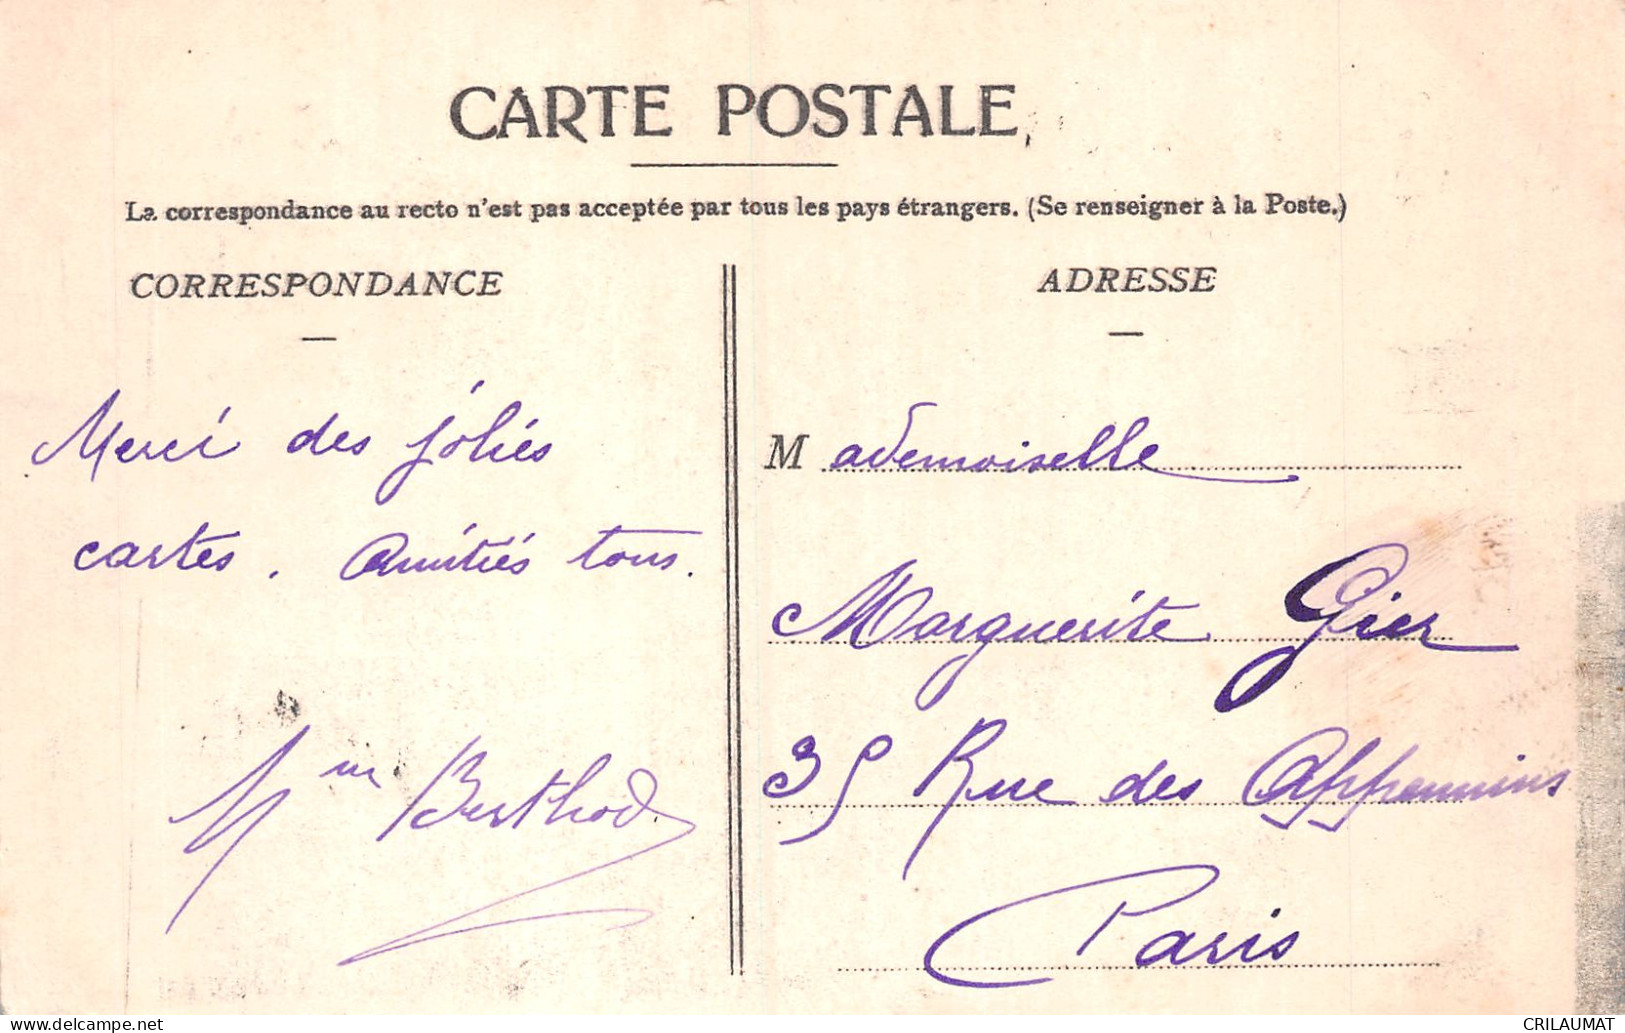 CARTE POSTALE
La correspondance au recto n'est pas acceptée par tous les pays étrangers. (Se renseigner à la Poste.)
CORRESPONDANCE
Merci des jolies
cartes. Amitiés tous.
Mm Berthod
ADRESSE
Mademoiselle
Marguerite Gier
35 Rue des Appennins
Paris
delcampe.net
CRILAUMAT